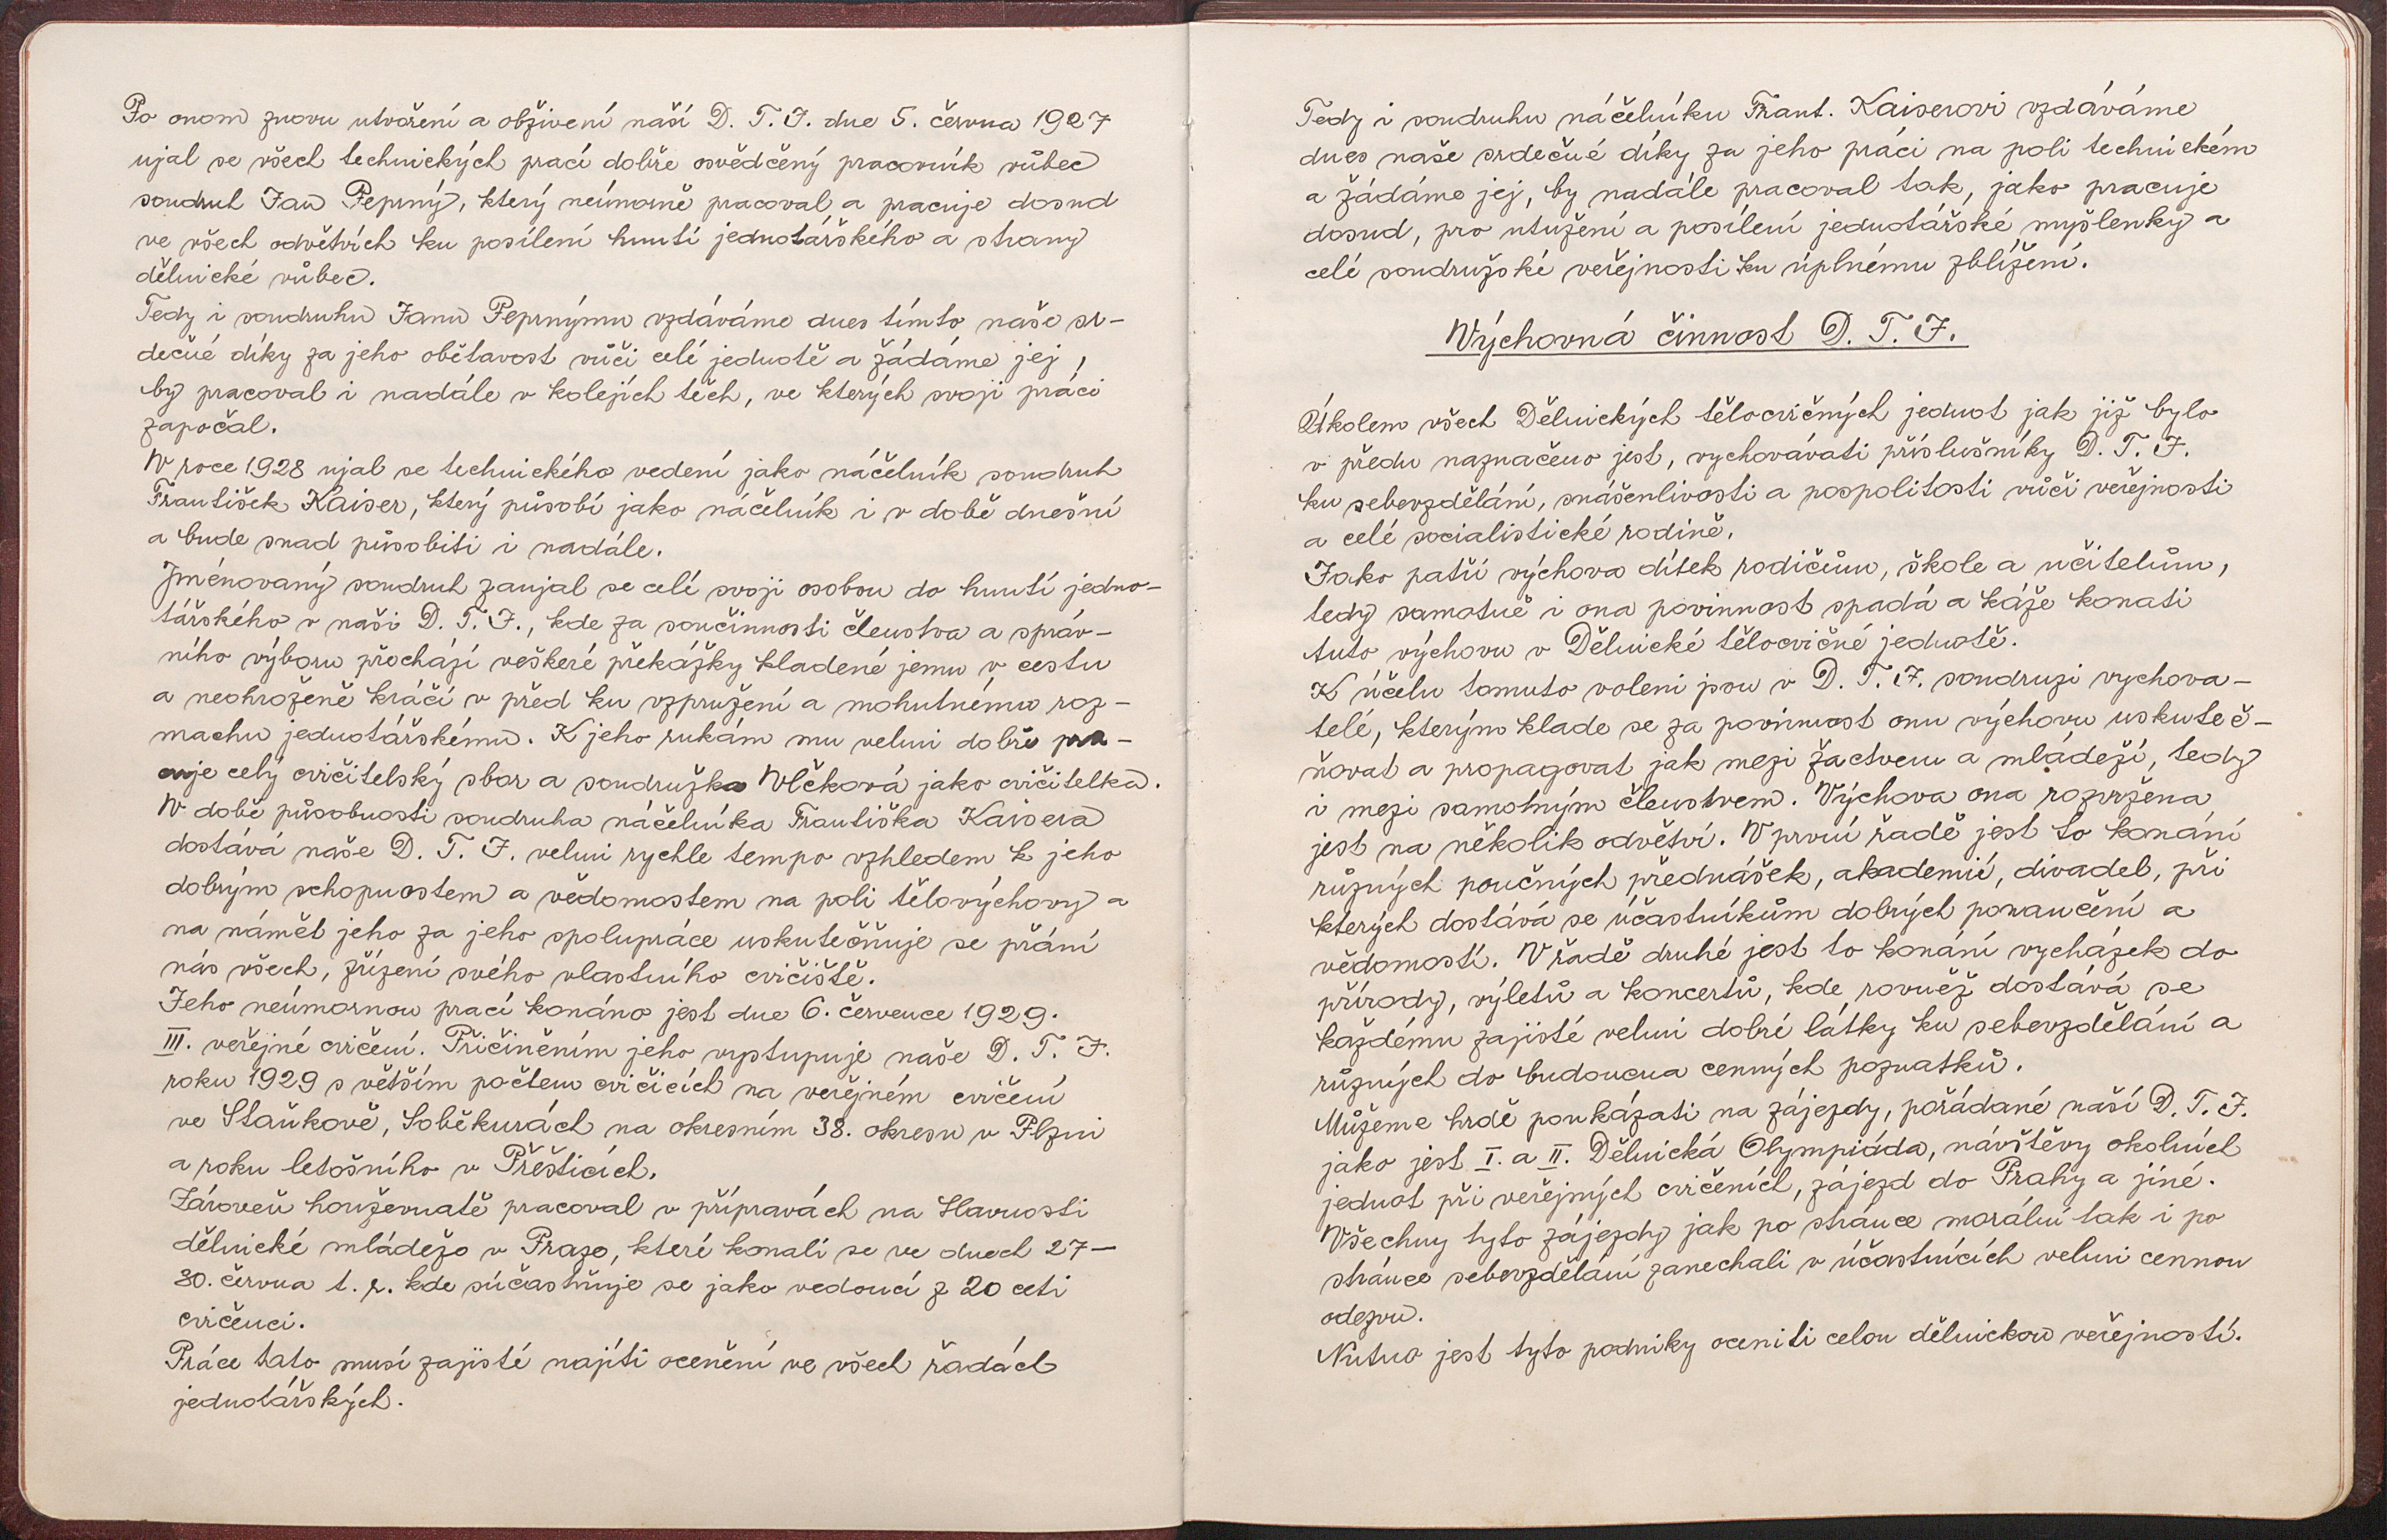 Po onom znovu utvoření a obživení naší D. T. J. dne 5. června 1927
ujal se všech technických prací dobře osvědčený pracovník vůbec
soudruh Jan Peprný, který neúmorně pracoval a pracuje dosud
ve všech odvětvích ku posílení hnutí jednotářského a strany
dělnické vůbec.
Tedy i soudruhu Janu Peprnýmu vzdáváme dnes tímto naše sr-
dečné díky za jeho obětavost vůči celé jednotě a žádáme jej,
by pracoval i nadále v kolejích těch, ve kterých svoji práci
započal.
V roce 1928 ujal se technického vedení jako náčelník soudruh
František Kaiser, který působí jako náčelník i v době dnešní
a bude snad působiti i nadále.
Jménovaný soudruh zaujal se celí svoji osobou do hnutí jedno-
tářského v naši D. T. J., kde za součinnosti členstva a správ-
ního výboru přechází veškeré překážky kladené jemu v cestu
a neohroženě kráčí v před ku vzpružení a mohutnému roz-
machu jednotářskému. K jeho rukám mu velmi dobře pra-
cuje celý cvičitelský sbor a soudružka Vlčková jako cvičitelka.
V době působnosti soudruha náčelníka Františka Kaisera
dostává naše D. T. J. velmi rychle tempo vzhledem k jeho
dobrým schopnostem a vědomostem na poli tělovýchovy a
na námět jeho za jeho spolupráce uskutečňuje se přání
nás všech, zřízení svého vlastního cvičiště.
Jeho neúmornou prací konáno jest dne 6. července 1929.
III. veřejné cvičení. Přičiněním jeho vystupuje naše D. T. J.
roku 1929 s větším počtem cvičících na veřejném cvičení
ve Staňkově, Soběkurách na okresním 38. okresu v Plzni
a roku letošního v Přěšticích.
Zároveň houževnatě pracoval v přípravách na Slavnosti
dělnické mládeže v Praze, které konali se ve dnech 27-
30. června t. r. kde súčastňuje se jako vedoucí z 20 ceti
cvičenci.
Práce tato musí zajisté najíti ocenění ve všech řadách
jednotářských.
Tedy i soudruhu náčelníku Frant. Kaiserovi vzdáváme
dnes naše srdečné díky za jeho práci na poli technickém
a žádáme jej, by nadále pracoval tak, jako pracuje
dosud, pro utužení a posílení jednotářské myšlenky a
celé soudružské veřejnosti ku úplnému zblížení.
Výchovná činnost D. T. J.
Úkolem všech Dělnických tělocvičných jednot jak již bylo
v předu naznačeno jest, vychovávati příslušníky D. T. J.
ku sebevzdělání, snášenlivosti a pospolitosti vůči veřejnosti
a celé socialistické rodině.
Jako patří výchova dítek rodičům, škole a učitelům,
tedy samotně i ona povinnost spadá a káže konati
tuto výchovu v Dělnické tělocvičné jednotě.
K účelu tomuto voleni jsou v D. T. J. soudruzi vychova-
telé, kterým klade se za povinnost onu výchovu uskuteč-
ňovat a propagovat jak mezi žactvem a mládeží, tedy
i mezi samotným členstvem. Výchova ona rozvržena
jest na několik odvětví. V první řadě jest to konání
různých poučných přednášek, akademií, divadel, při
kterých dostává se účastníkům dobrých ponaučení a
vědomostí. V řadě druhé jest to konání vycházek do
přírody, výletů a koncertů, kde rovněž dostává se
každému zajisté velmi dobré látky ku sebevzdělání a
různých do budoucna cenných poznatků.
Můžeme hrdě poukázati na zájezdy, pořádané naší D. T. J.
jako jest I. a II. Dělnická Olympiáda, návštěvy okolních
jednot při veřejných cvičeních, zájezd do Prahy a jiné.
Všechny tyto zájezdy jak po stránce morální tak i po
stránce sebevzdělání zanechali v účastnících velmi cennou
odezvu.
Nutno jest tyto podniky oceniti celou dělnickou veřejností.